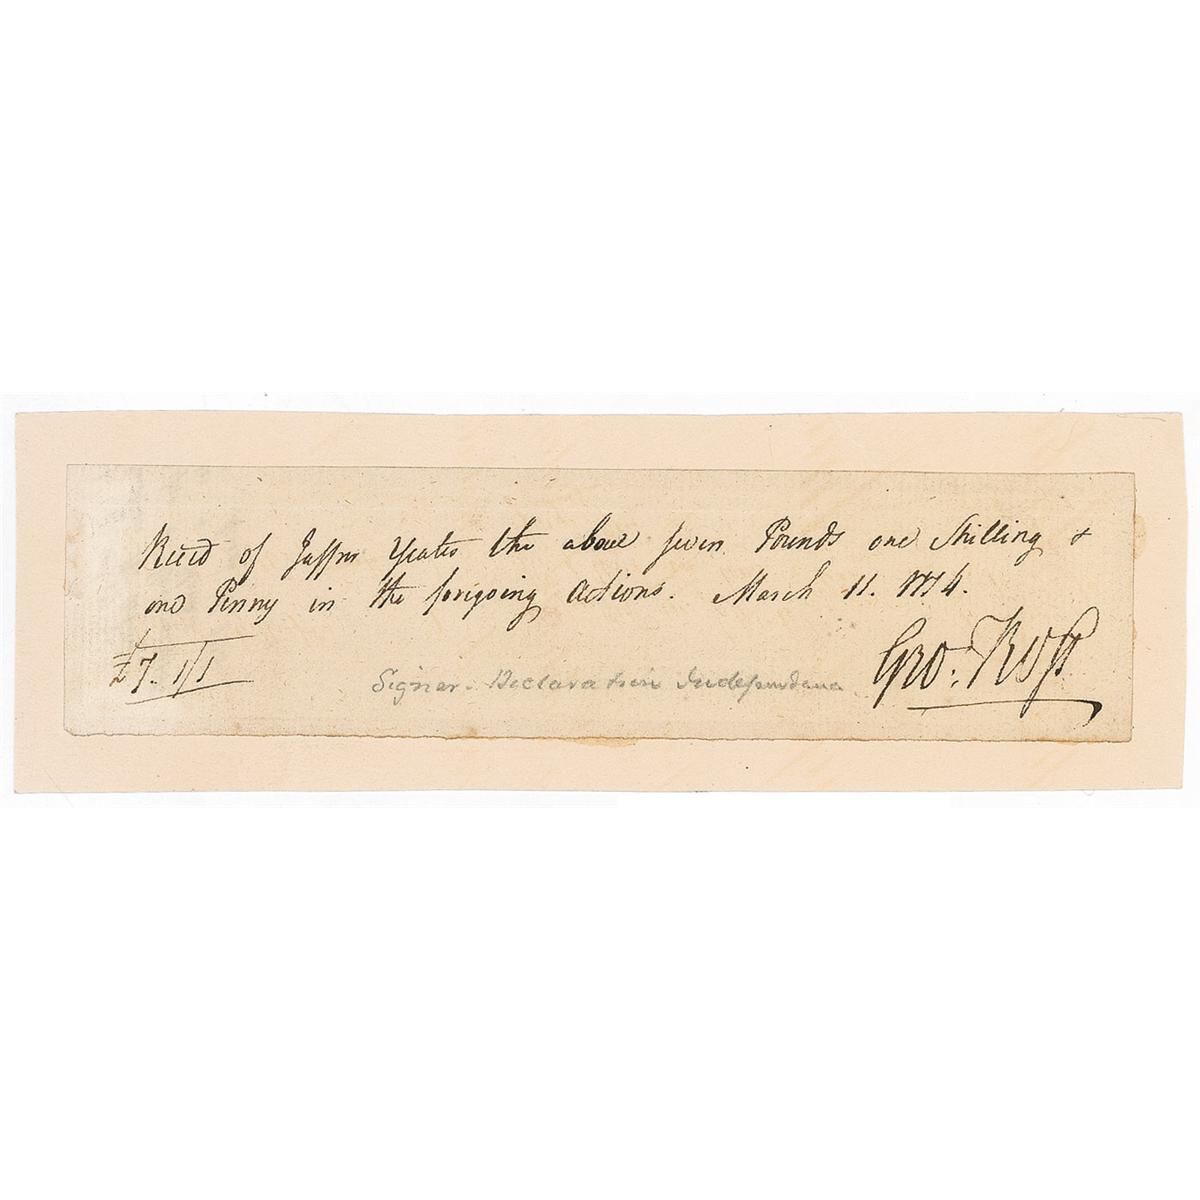 Recd of Jasper Yeates the above seven Pounds one Shilling &
one Penny in the foregoing Actions. March 11. 1774.
£7. 1/1
Signer. Declaration Independence
Geo: Ross